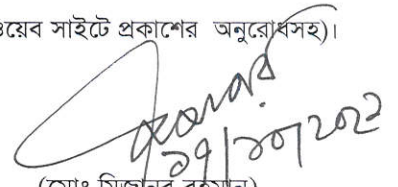 ওয়েব সাইটে প্রকাশের অনুরোধসহ)।
১৭/১০/২০২২
(মোঃ মিজানুর রহমান)